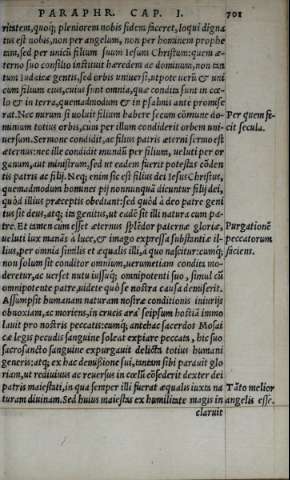 PARAPHR. CAP. I. 701
ritatem, quoq; pleniorem nobis fidem faceret, loqui digna
tus est nobis, non per angelum, non per hominem prophe
tam, sed per unici filium suum Iesum Christum: quem æ-
terno suo consilio instituit hæredem ac dominum, non tan
tum Iudaicæ gentis, sed orbis uniuersi, utpote uerũ & uni
cum filium eius, cuius sunt omnia, quæ condita sunt in cœ-
lo & in terra, quemadmodum & in psalmis ante promise
rat. Nec mirum si uoluit filium habere secum cõmune do-
Per quem fe-
minium totius orbis, cum per illum condiderit orbem uni-
cit secula.
uersum. Sermone condidit, ac filius patris æterni sermo est
æternus: nec ille condidit mundũ per filium, ueluti per or
ganum, aut ministrum, sed ut eadem fuerit potestas cõden
tis patris ac filij. Neq; enim sic est filius dei Iesus Christus,
quemadmodum homines pij nonnunquã dicuntur filij dei,
quòd illius præceptis obediant: sed quòd à deo patre geni
tus sit deus, atq; ita genitus, ut eadẽ sit illi natura cum pa-
tre. Et tamen cum esset æternus splẽdor paternæ gloriæ,
Purgationẽ
ueluti lux manãs à luce, & imago expressa substantiæ il-
peccatorum
lius, per omnia similis et æqualis illi, à quo nascitur: cumq;
faciens.
non solum sit conditor omnium, uerumetiam condita mo-
deretur, ac uerset nutu iussuq; omnipotenti suo, simul cũ
omnipotente patre, uidete quò se nostra causa demiserit.
Assumpsit humanam naturam nostræ conditionis iniurijs
obnoxiam, ac moriens, in crucis ara seipsum hostiã immo
lauit pro nostris peccatis: cumq; antehac sacerdos Mosai
cæ legis pecudis sanguine soleat expiare peccata, hic suo
sacrosancto sanguine expurgauit delicta totius humani
generis: atq; ex hac demissione sui, tantam sibi parauit glo
riam, ut rediuiuus ac reuersus in cœlũ cõsederit dexter dei
patris maiestati, in qua semper illi fuerat æqualis iuxta na
Tãto melior
turam diuinam. Sed huius maiestas ex humilitate magis in
angelis esse.
claruit